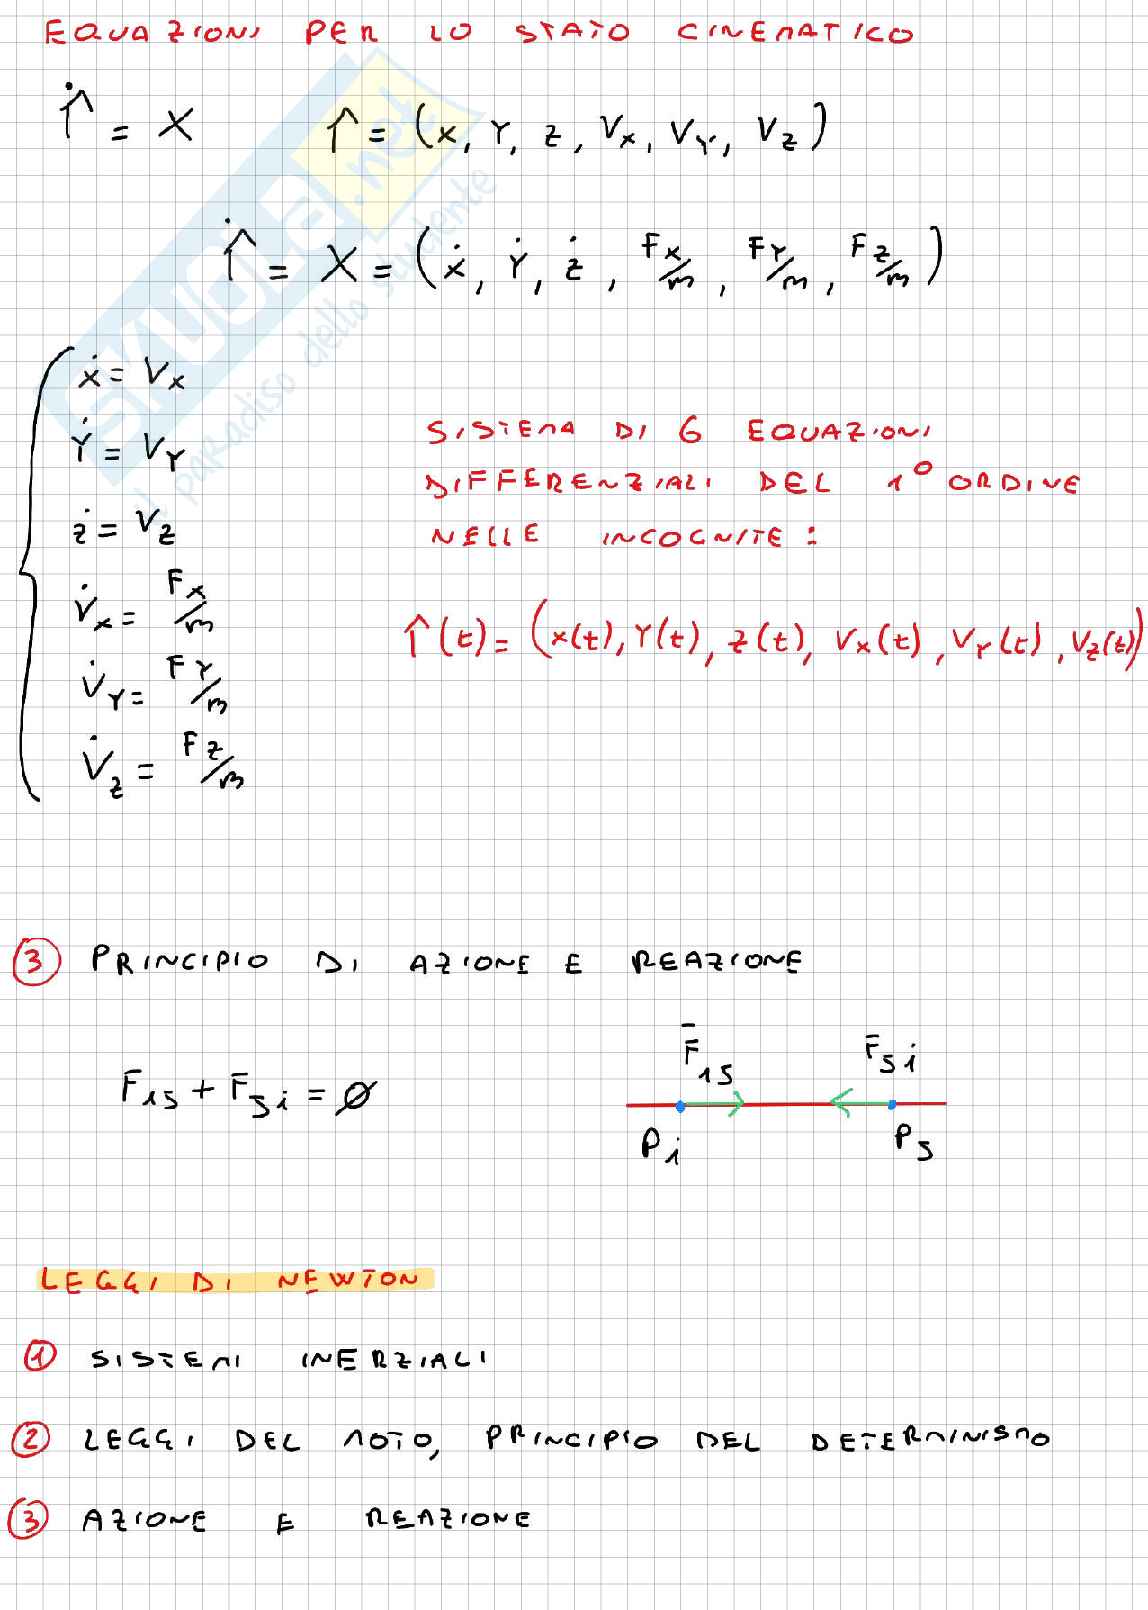 EQUAZIONI PER LO STATO CINEMATICO
Γ̇ = X Γ = (x, Y, z, Vx, VY, Vz)
Γ̇ = X = (ẋ, Ẏ, ż, Fx/m, FY/m, Fz/m)
ẋ = Vx
Ẏ = VY
ż = Vz
V̇x = Fx/m
V̇Y = FY/m
V̇z = Fz/m
SISTEMA DI 6 EQUAZIONI
DIFFERENZIALI DEL 1° ORDINE
NELLE INCOGNITE:
Γ(t) = (x(t), Y(t), z(t), Vx(t), VY(t), Vz(t))
3 PRINCIPIO DI AZIONE E REAZIONE
Fij + Fji = ∅
F̄ij F̄ji
Pi Pj
LEGGI DI NEWTON
1 SISTEMI INERZIALI
2 LEGGI DEL MOTO, PRINCIPIO DEL DETERMINISMO
3 AZIONE E REAZIONE
SKUOLA.net
il paradiso dello studente